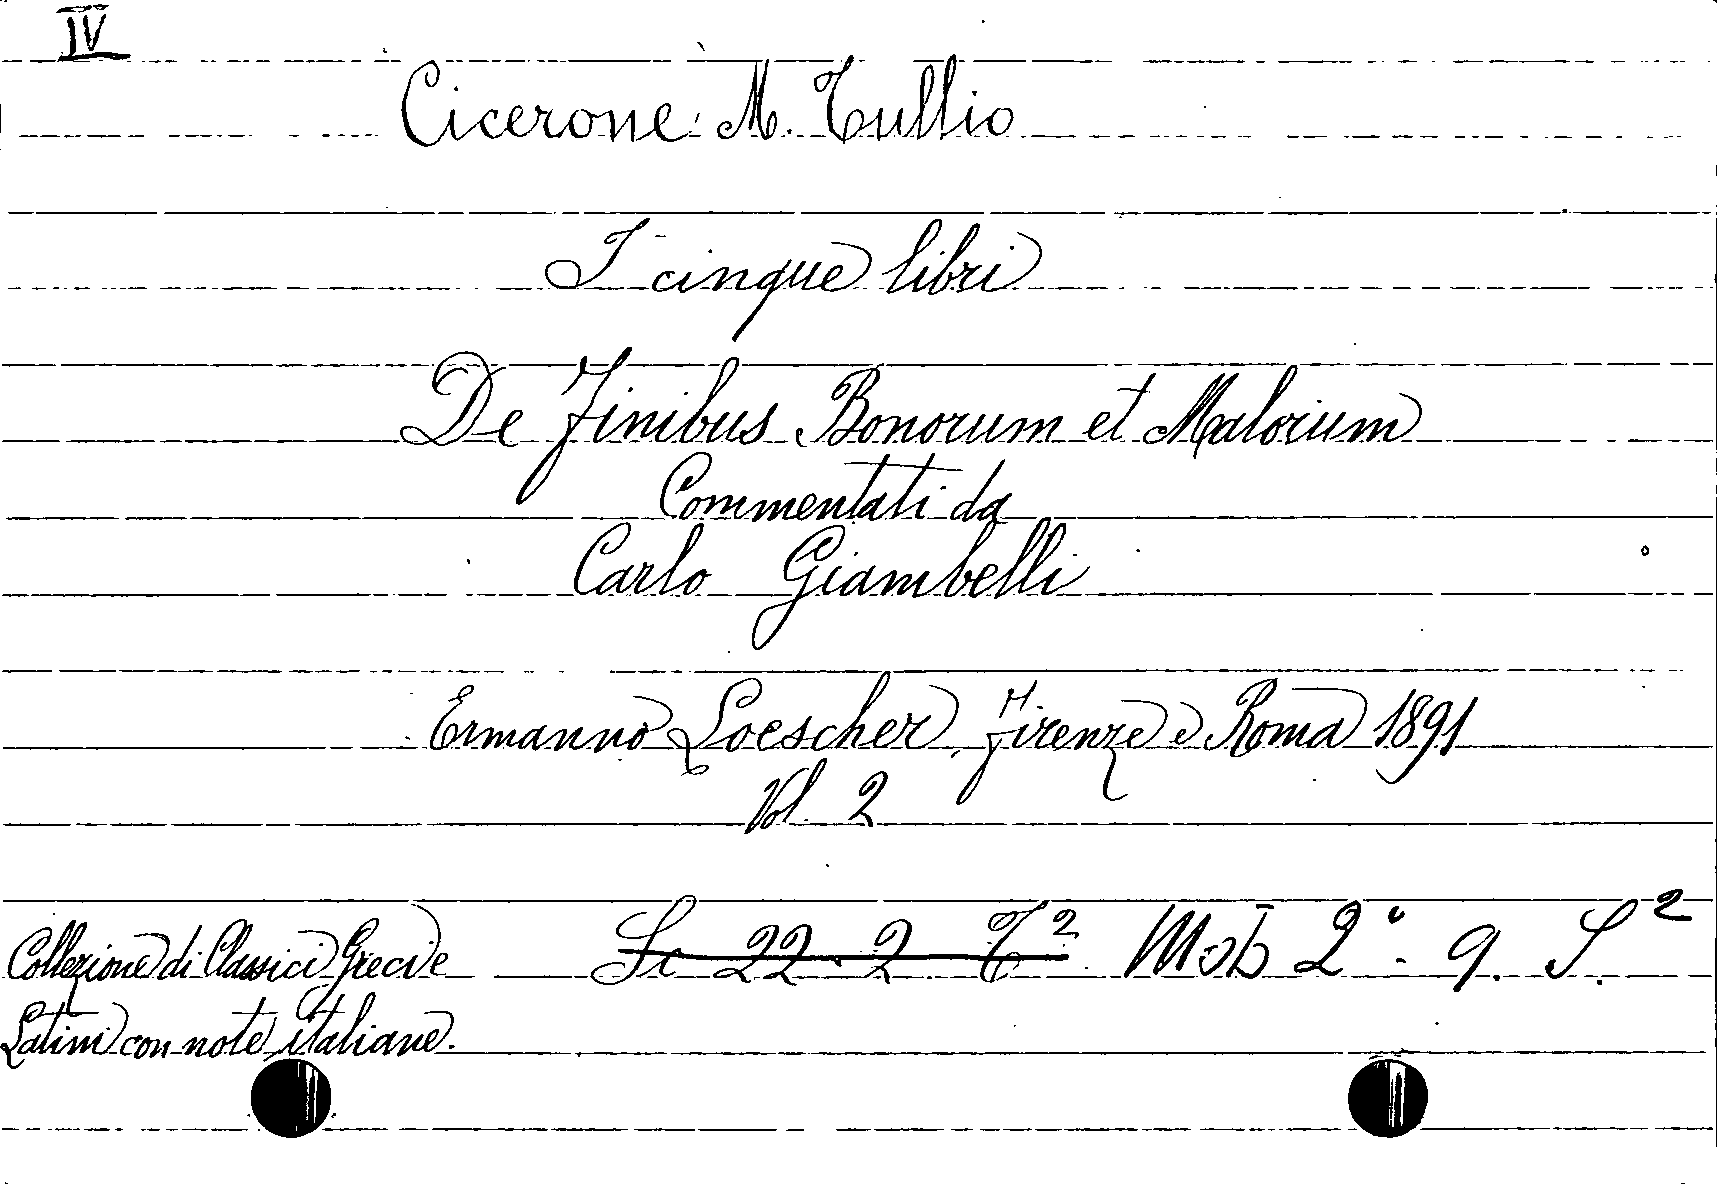 IV
Cicerone M. Tullio
I cinque libri
De Finibus Bonorum et Malorum
Commentati da
Carlo Giambelli
Ermanno Loescher, Firenze e Roma 1891
Vol. 2
Collezione di Classici Greci e
Latini con note italiane.
22. 2 2° 9. S.²